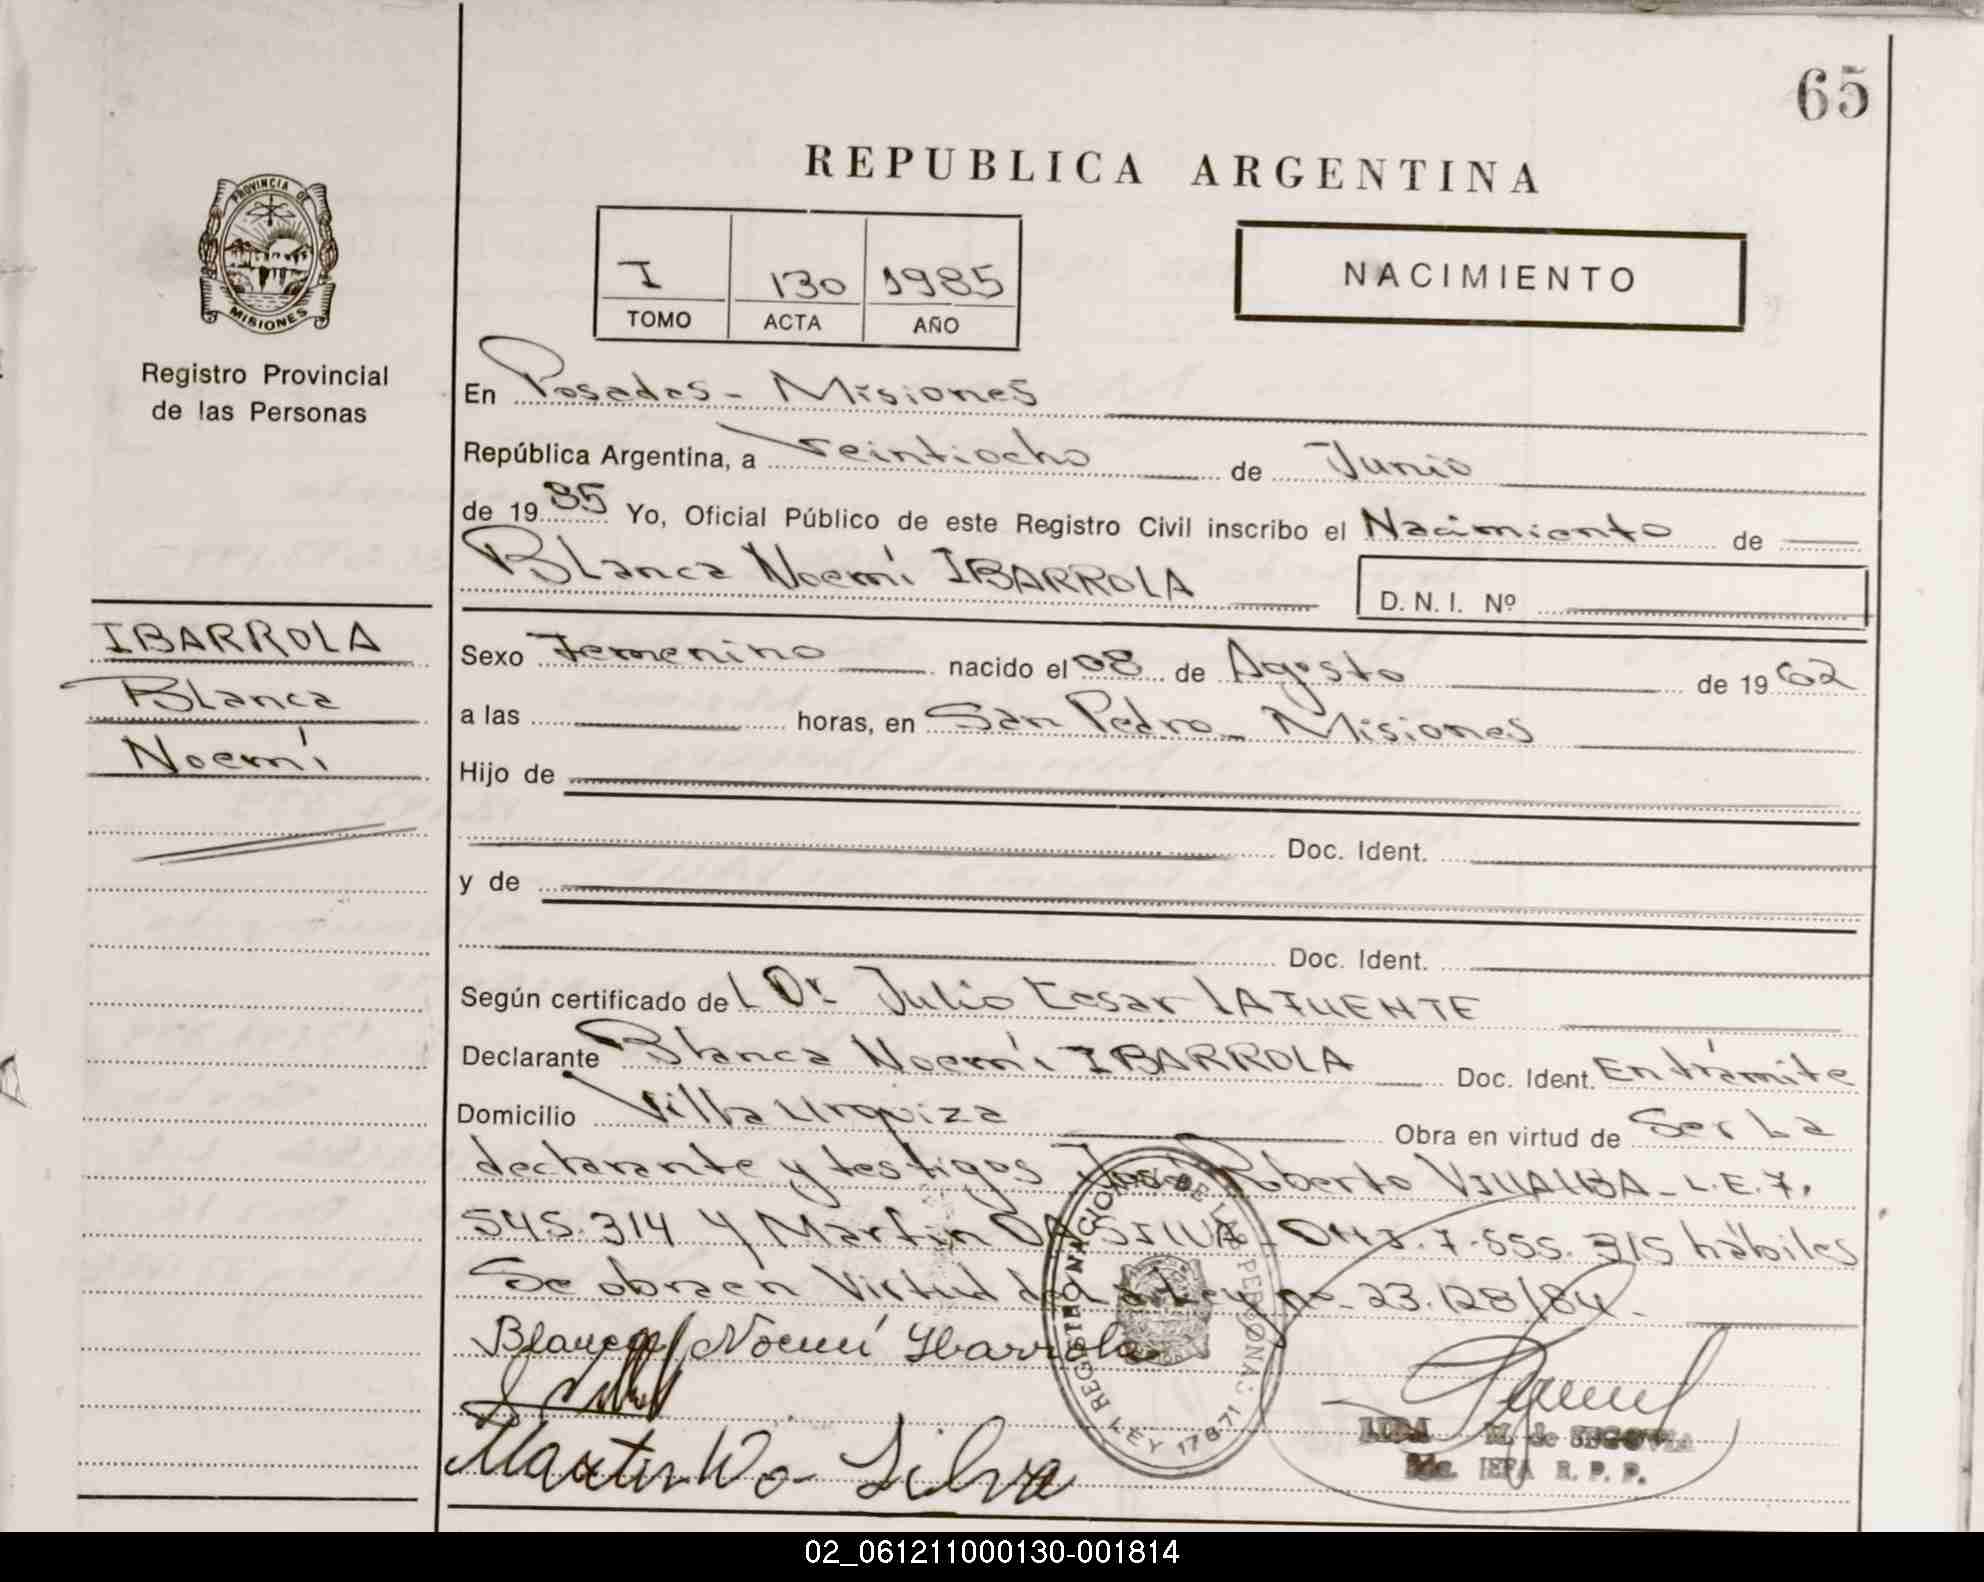 65
REPUBLICA ARGENTINA
PROVINCIA DE
MISIONES
Registro Provincial
de las Personas
I 130 1985
TOMO ACTA AÑO
NACIMIENTO
En Posadas - Misiones
República Argentina, a Veintiocho de Junio
de 1985 Yo, Oficial Público de este Registro Civil inscribo el Nacimiento de
Blanca Noemí IBARROLA D.N.I. Nº
IBARROLA
Blanca
Noemí
Sexo Femenino nacido el 08 de Agosto de 1962
a las horas, en San Pedro - Misiones
Hijo de
Doc. Ident.
y de
Doc. Ident.
Según certificado del Dr. Julio Cesar LAFUENTE
Declarante Blanca Noemí IBARROLA Doc. Ident. En trámite
Domicilio Villa Urquiza Obra en virtud de Ser La
declarante y testigos José Roberto VILLALBA - L.E. 7.
545.314 y Martin DA SILVA - DNI. 7.555.315 hábiles
Se obra en Virtud de La Ley nº 23.128/84.
Blanca Noemí Ybarrola
REGISTRO NACIONAL DE LAS PERSONAS
LEY 17671
Martin Da Silva
M. de SEGOVIA
JEFA R.P.P.
02_061211000130-001814